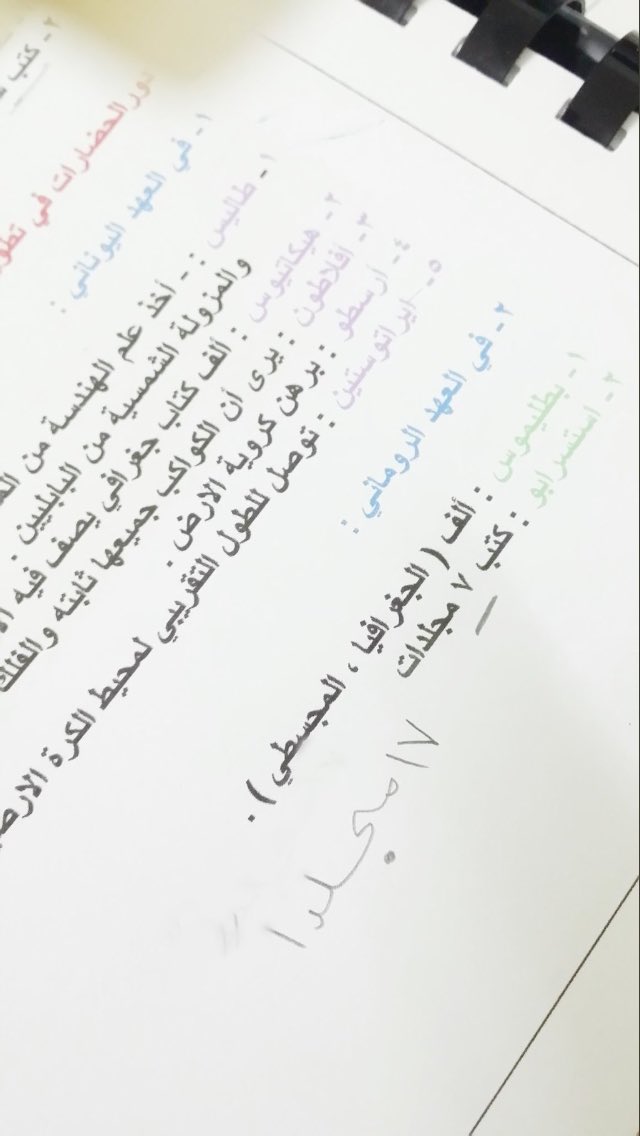 ٢- كتب
دور الحضارات في تطور
١- في العهد اليوناني :
١- طاليس : - أخذ علم الهندسة من
والمزولة الشمسية من البابليين .
٢- هيكاتيوس : ألف كتاب جغرافي يصف فيه
٣- أفلاطون : يرى أن الكواكب جميعها ثابته والفلك
٤- أرسطو : برهن كروية الارض .
٥- ايراتوستين : توصل للطول التقريبي لمحيط الكرة الارض
٢- في العهد الروماني :
١- بطليموس : ألف ( الجغرافيا ، المجسطي ) .
٢- استسرابو : كتب ٧ مجلدات
١٧ مجلدا